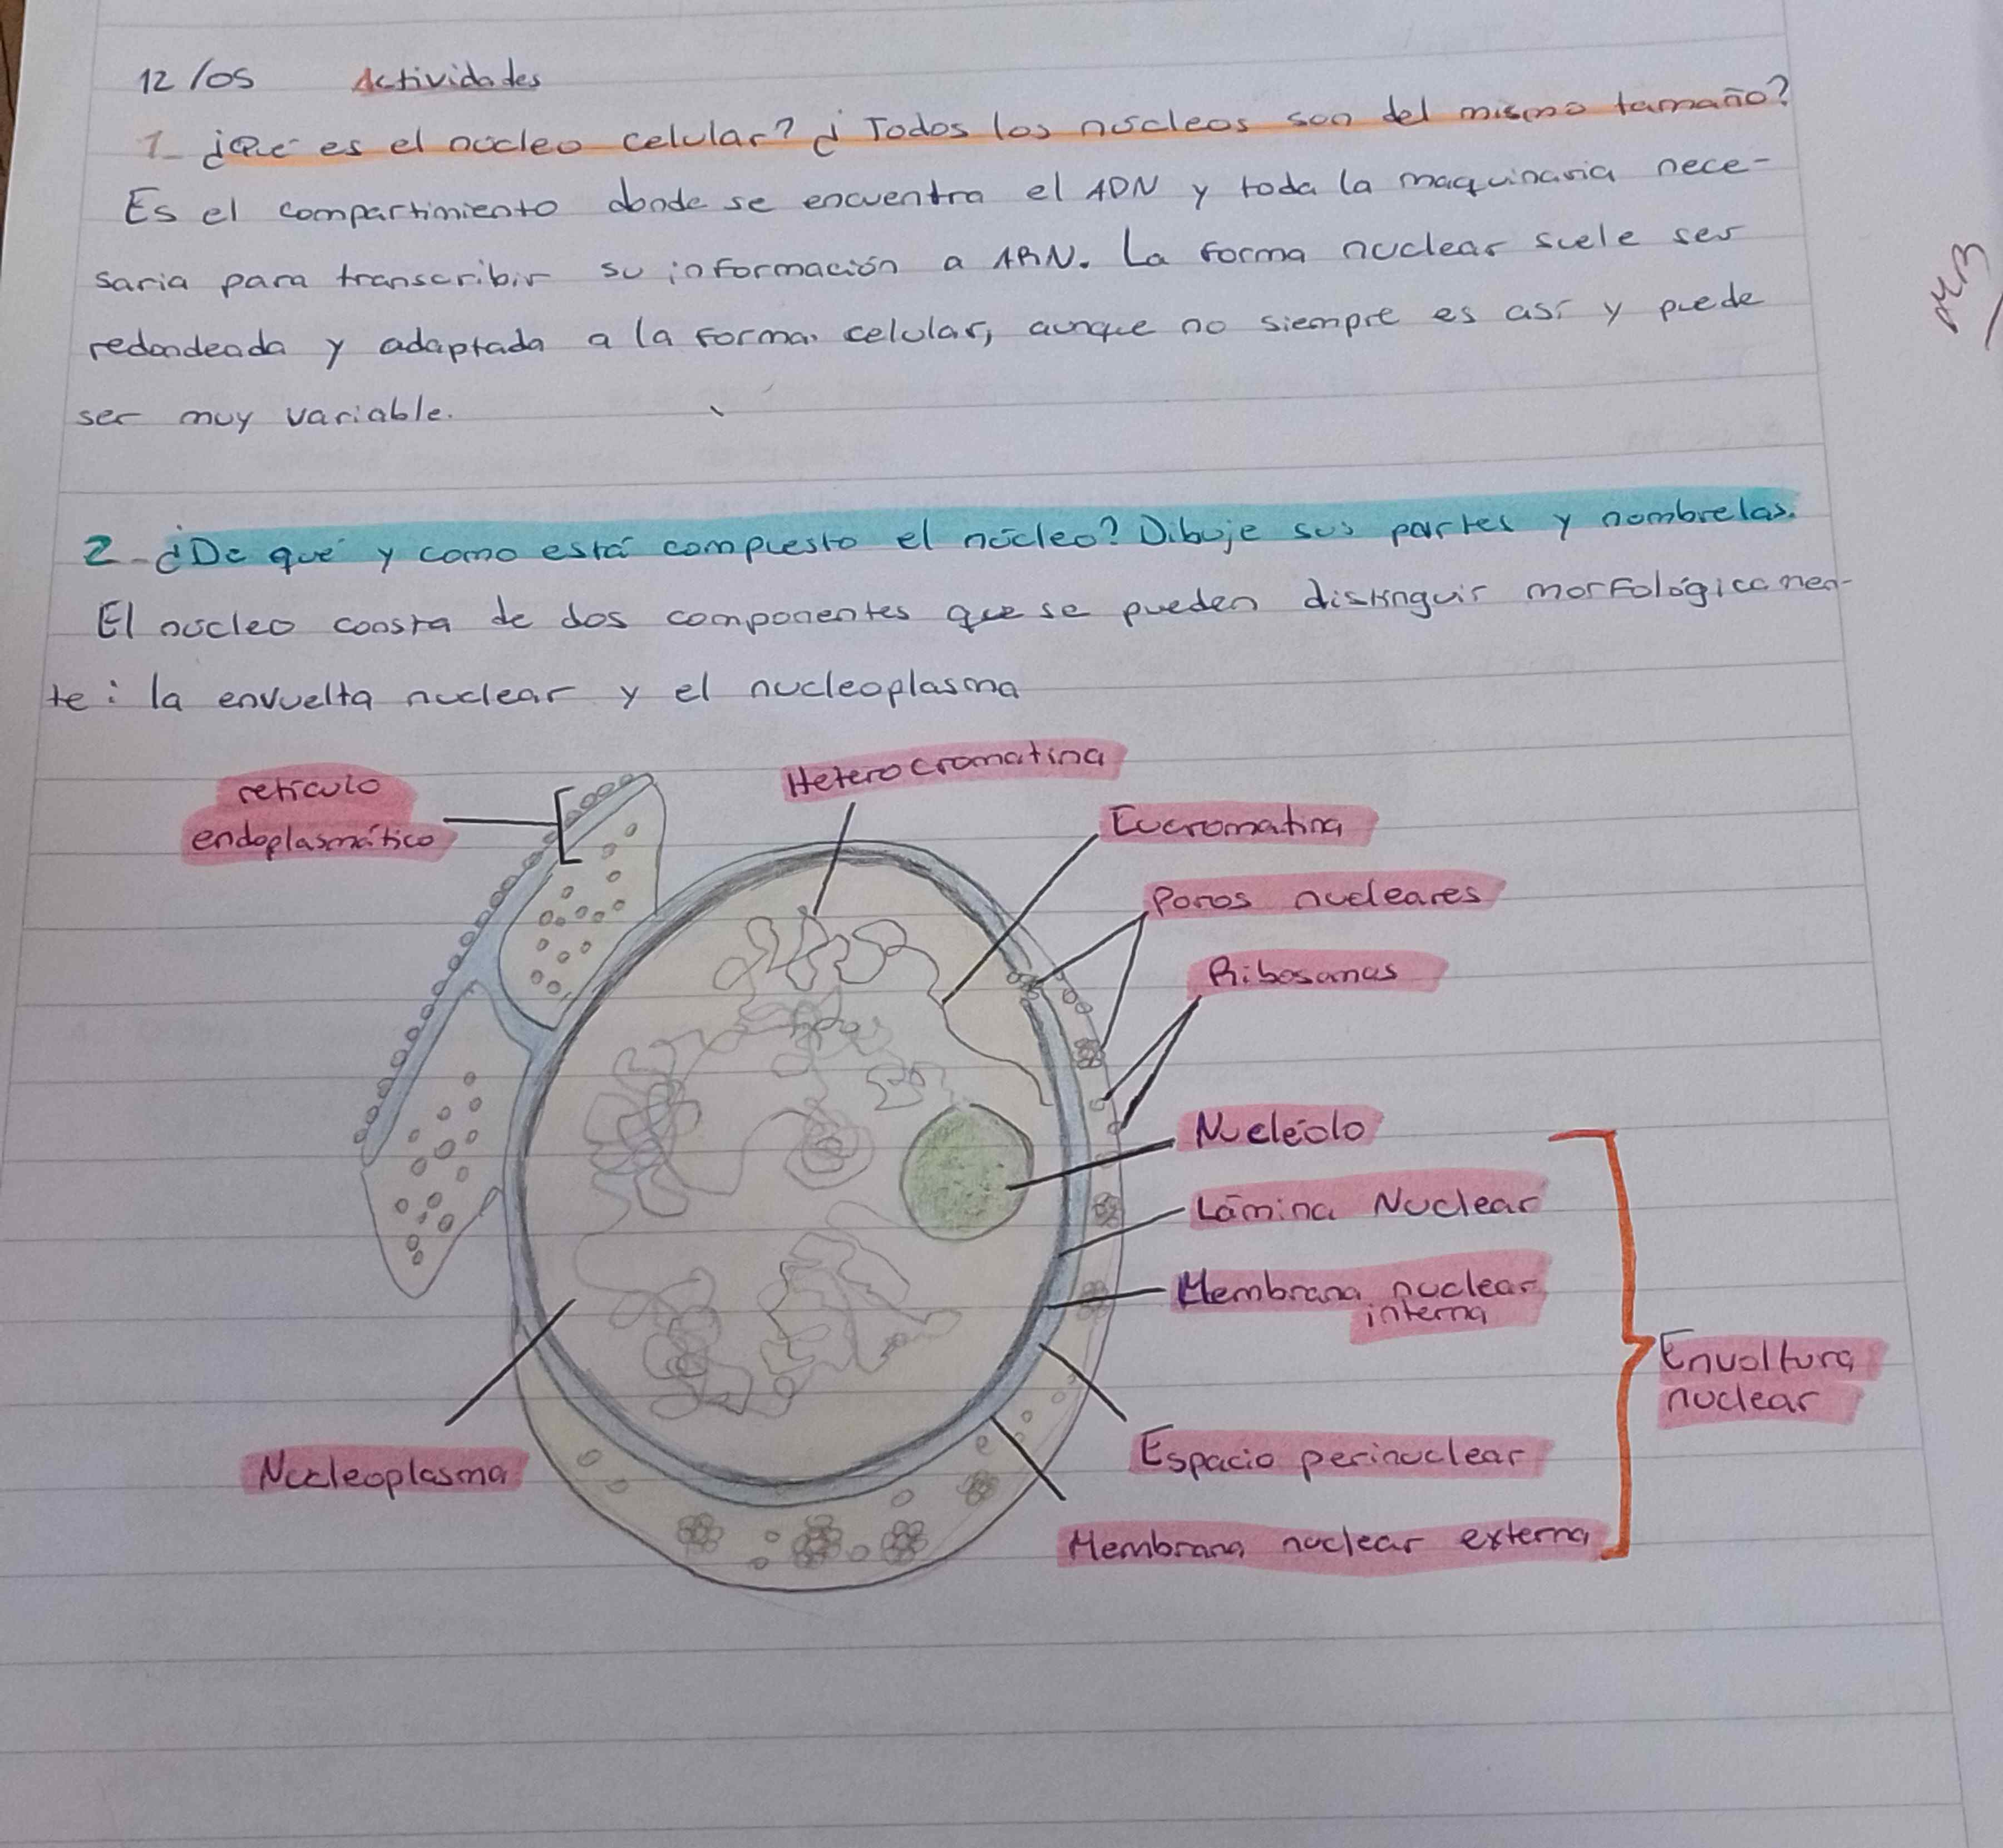 12/05 Actividades
1- ¿Qué es el núcleo celular? ¿Todos los núcleos son del mismo tamaño?
Es el compartimiento donde se encuentra el ADN y toda la maquinaria nece-
saria para transcribir su información a ARN. La forma nuclear suele ser
redondeada y adaptada a la forma celular, aunque no siempre es así y puede
ser muy variable.
MB
2- ¿De qué y como está compuesto el núcleo? Dibuje sus partes y nombrelas.
El núcleo consta de dos componentes que se pueden distinguir morfológicamen-
te: la envuelta nuclear y el nucleoplasma
retículo
endoplasmático
Heterocromatina
Eucromatina
Poros nucleares
Ribosomas
Nucléolo
Lámina Nuclear
Membrana nuclear
interna
Envoltura
nuclear
Espacio perinuclear
Nucleoplasma
Membrana nuclear externa